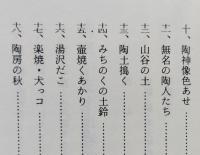 十、陶神像色あせ
十一、無名の陶人たち
十二、山谷の土
十三、陶土搗く
十四、みちのくの土鈴
十五、壺焼くあかり
十六、湯沢だこ
十七、楽焼・犬っコ
十八、陶房の秋